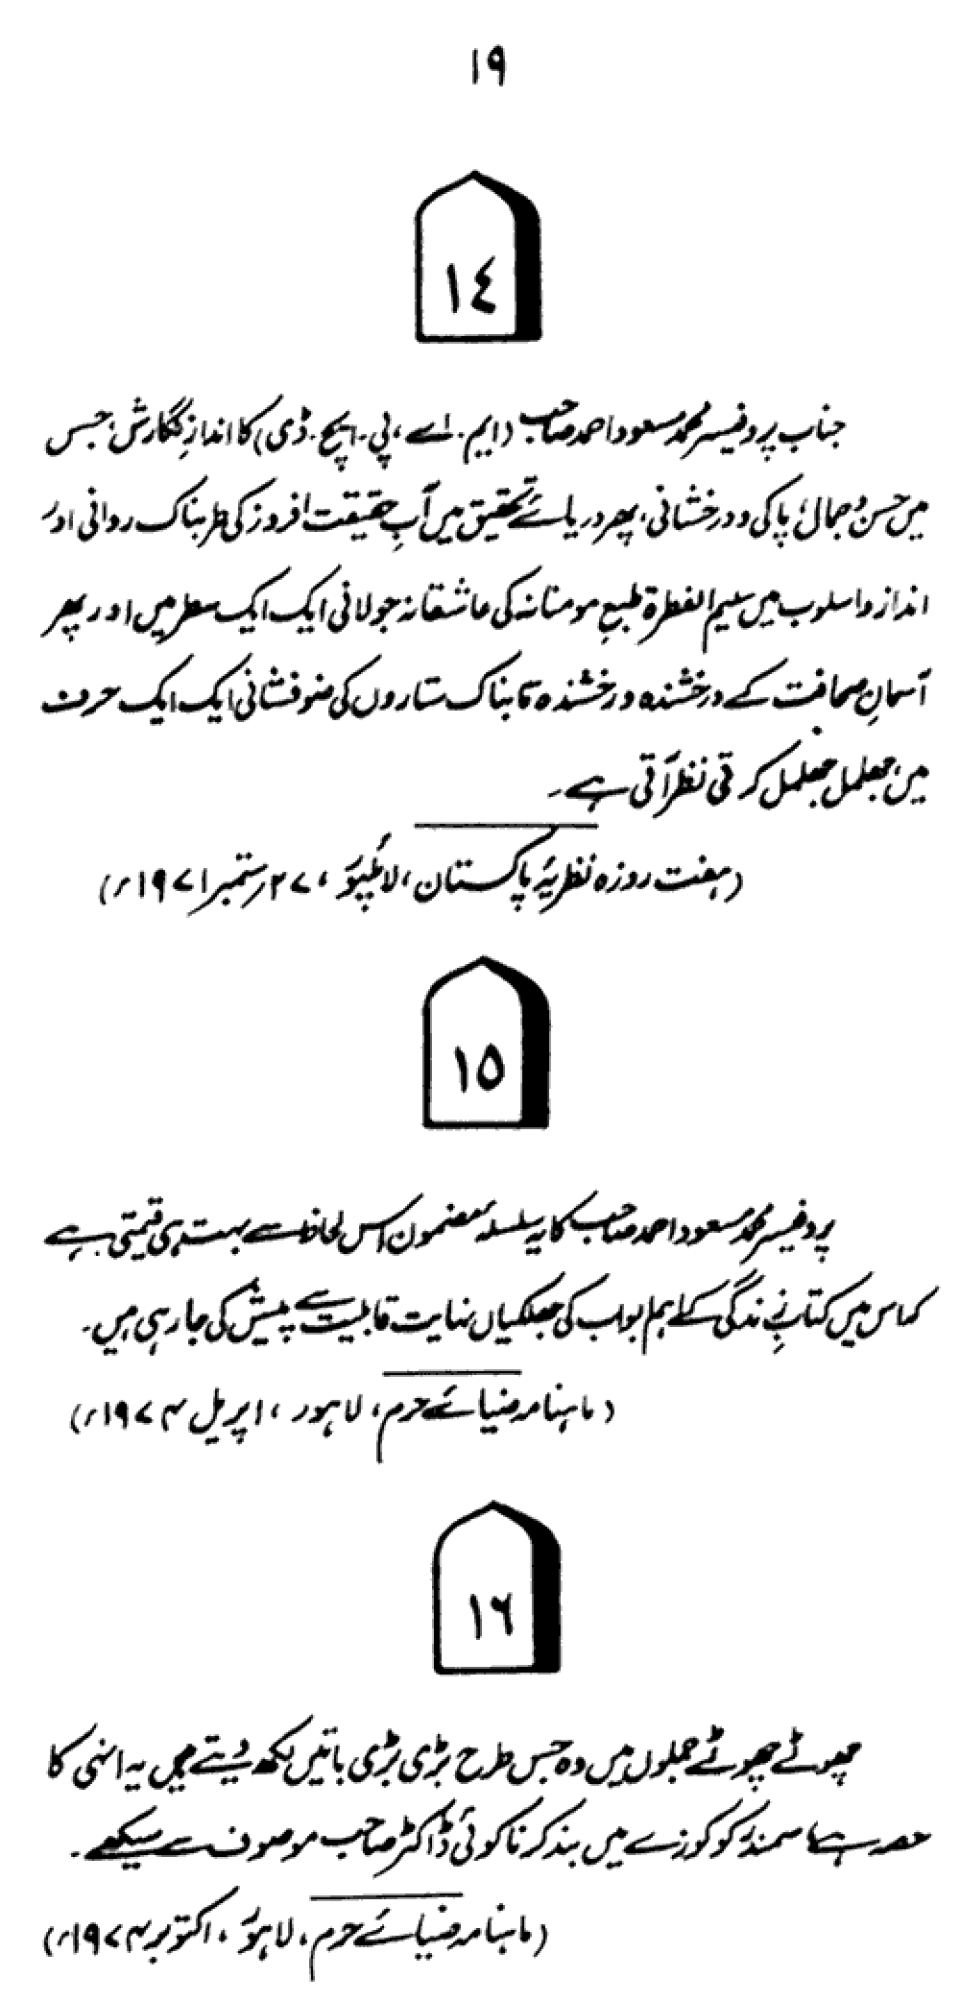 ۱۹
١٤
جناب پروفیسر محمد مسعود احمد صاحب (ایم۔ اے، پی۔ ایچ۔ ڈی) کا اندازِ نگارش؛ جس
میں حسن و جمال؛ پاکی و درخشانی، پھر دریائے تحقیق میں آبِ حقیقت افروز کی طربناک روانی اور
انداز و اسلوب میں سلیم الفطرۃ طبعِ مومنانہ کی عاشقانہ جولانی ایک ایک سطر میں اور پھر
آسمانِ صحافت کے درخشندہ درخشندہ تابناک ستاروں کی ضوفشانی ایک ایک حرف
میں جھلمل جھلمل کرتی نظر آتی ہے۔
(ہفت روزہ نظریۂ پاکستان، لائلپور، ۲۷ ستمبر ۱۹۷۱ء)
١٥
پروفیسر محمد مسعود احمد صاحب کا یہ سلسلۂ مضمون اس لحاظ سے بہت ہی قیمتی ہے
کہ اس میں کتابِ زندگی کے اہم ابواب کی جھلکیاں نہایت قابلیت سے پیش کی جا رہی ہیں۔
(ماہنامہ ضیائے حرم، لاہور، اپریل ۱۹۷۴ء)
١٦
چھوٹے چھوٹے جملوں میں وہ جس طرح بڑی بڑی باتیں لکھ دیتے ہیں یہ انہی کا
حصہ ہے، سمندر کو کوزے میں بند کرنا کوئی ڈاکٹر صاحب موصوف سے سیکھے۔
(ماہنامہ ضیائے حرم، لاہور، اکتوبر ۱۹۷۴ء)